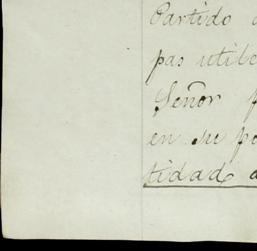 Partido
pas utile
Señor
en su
tidad